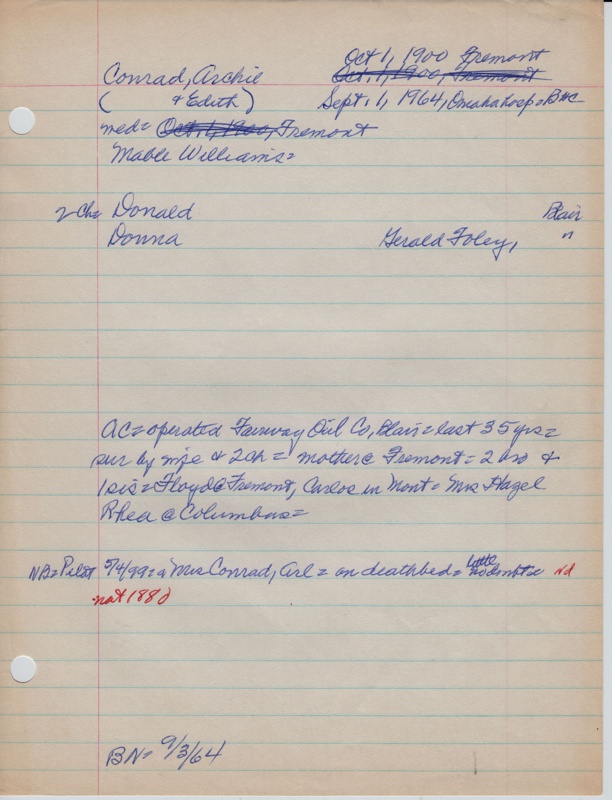 Oct 1, 1900 Fremont
Conrad, Archie Oct. 1, 1900, Fremont
( & Edith) Sept. 1, 1964, Omaha hosp = B#C
med = Oct. 1, 1900, Fremont
Mable Williams =
2 ch = Donald Blair
Donna Gerald Foley, "
AC = operated Fairway Oil Co, Blair = last 35 yrs =
sur by wife & 2 ch = mother @ Fremont = 2 bro &
1 sis = Floyd @ Fremont, Carlos in Mont = Mrs Hazel
Rhea @ Columbus =
NB = Pilot 5/4/99 = a Mrs Conrad, Arl = on deathbed = little no doubt = Nd
not 1880
BN = 9/3/64